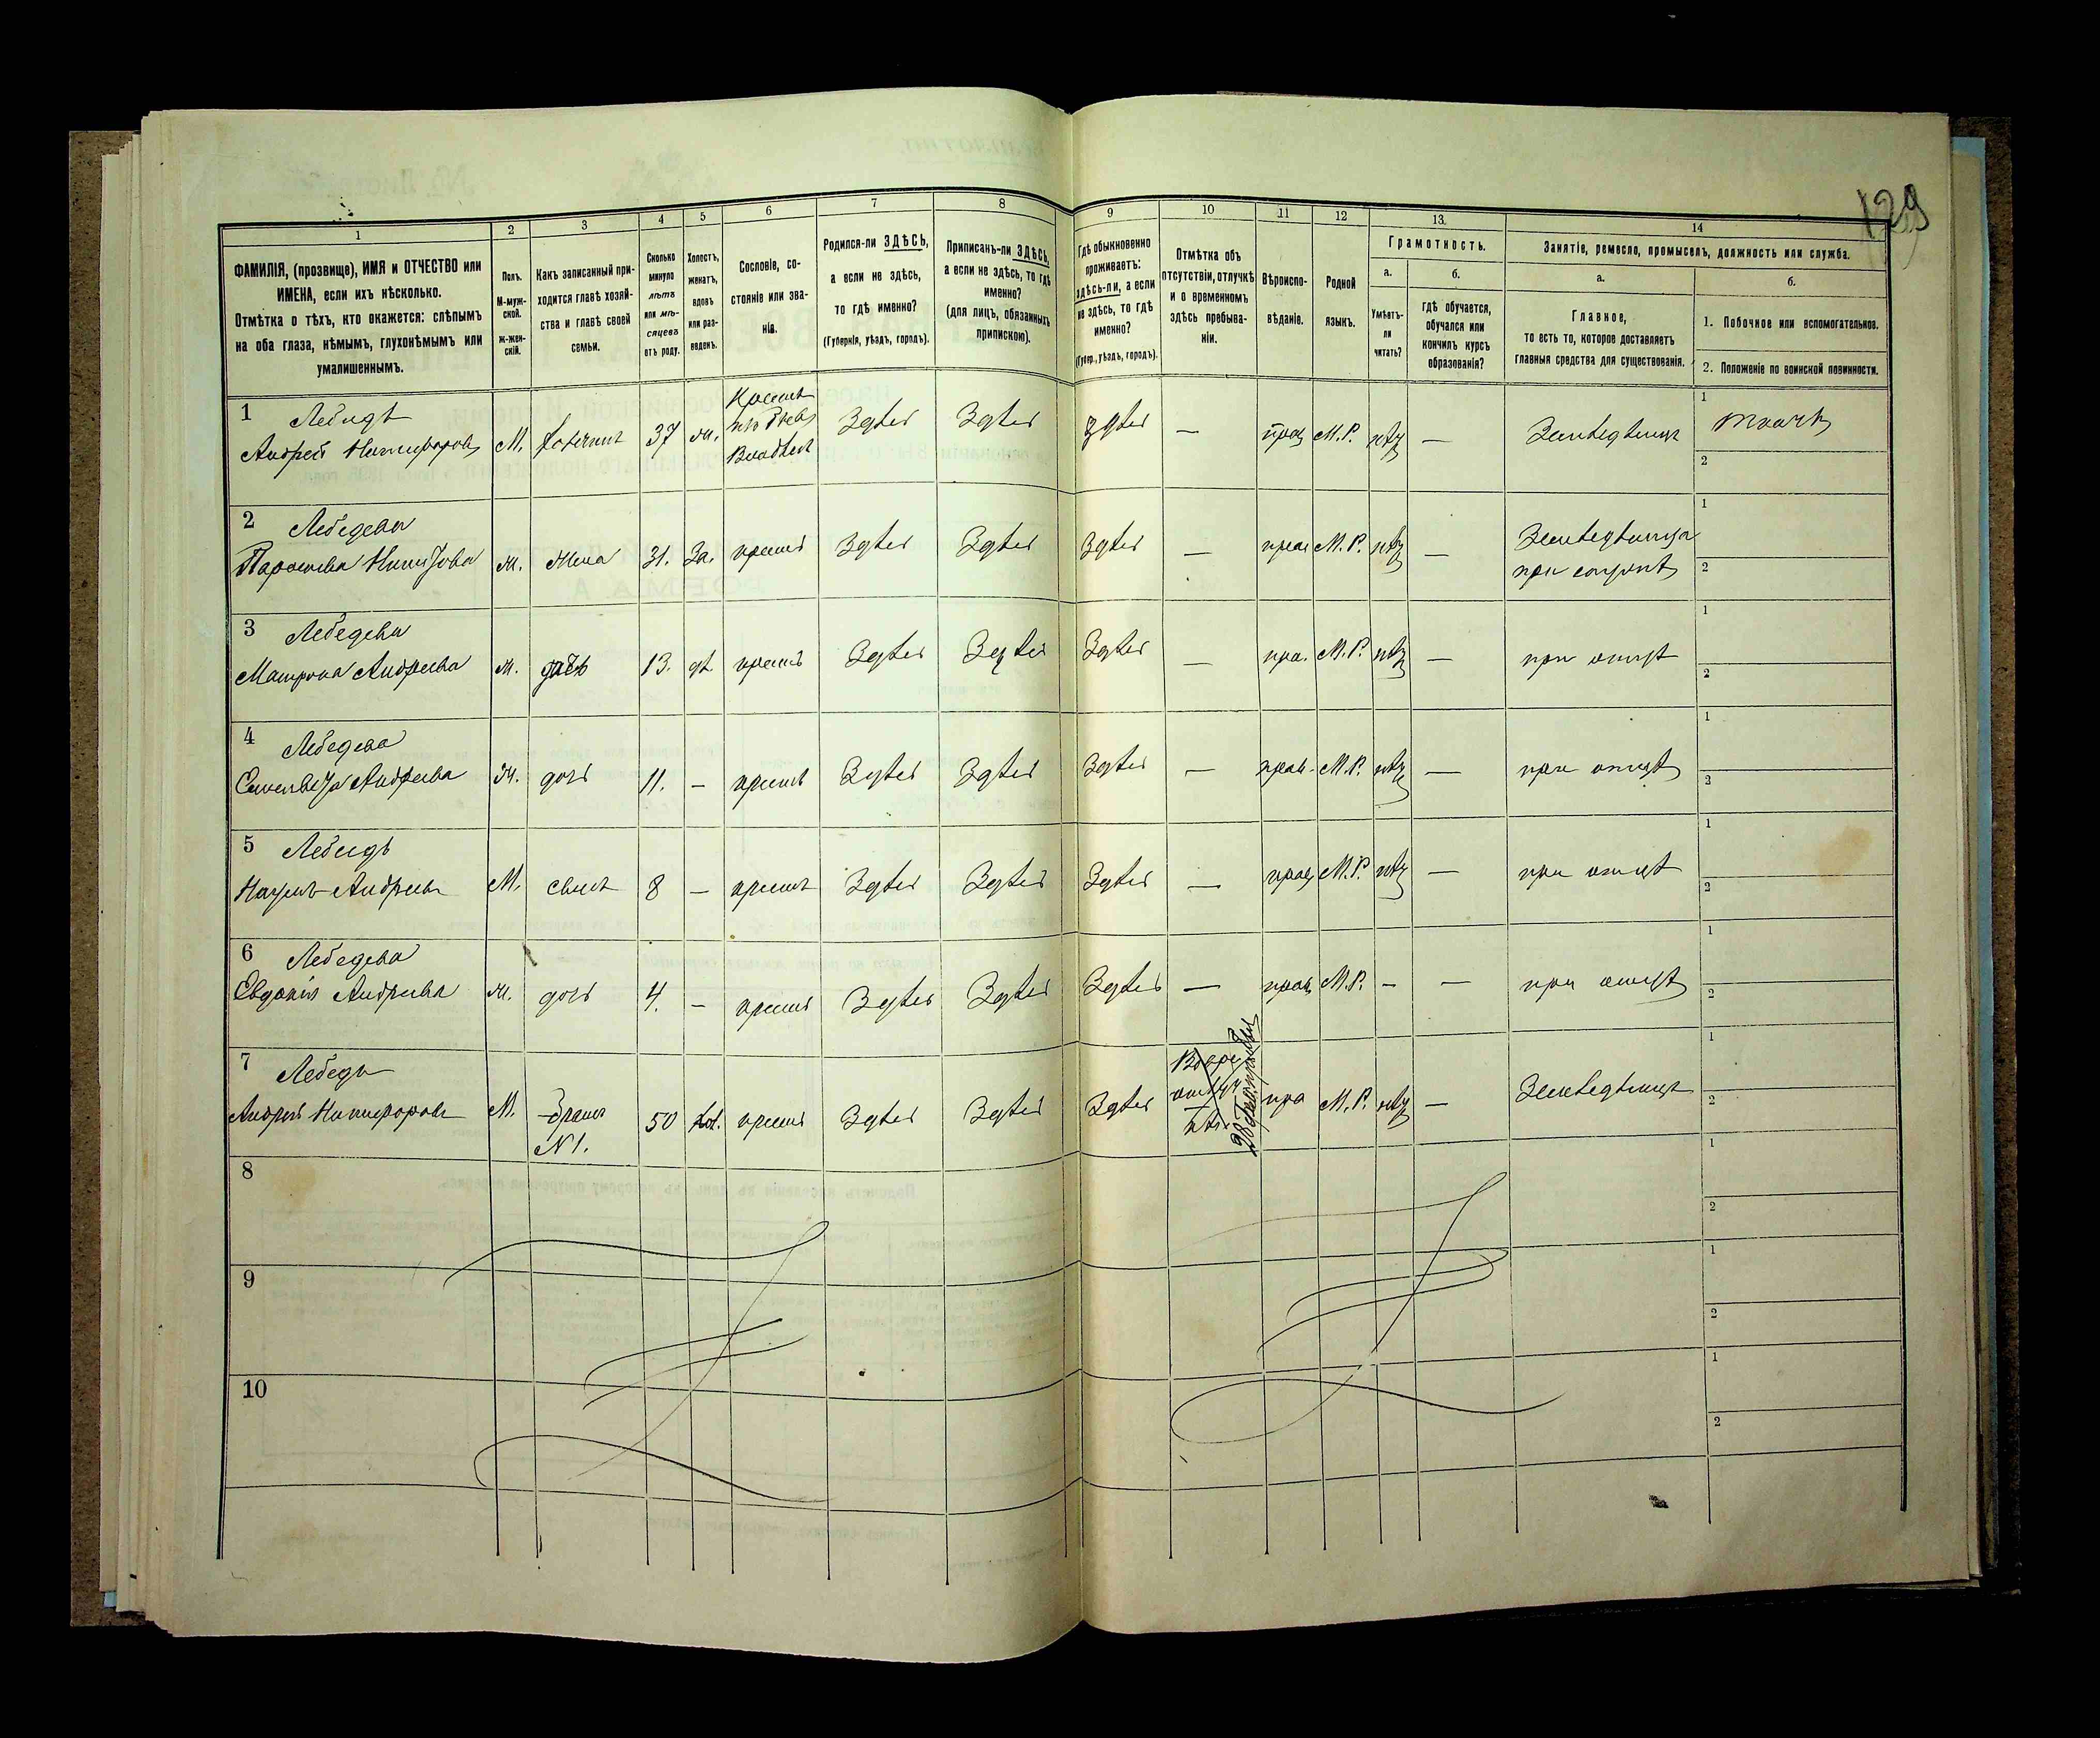 129
1
2
3
4
5
6
7
8
9
10
11
12
13.
14
ФАМИЛІЯ, (прозвище), ИМЯ и ОТЧЕСТВО или
ИМЕНА, если ихъ нѣсколько.
Отмѣтка о тѣхъ, кто окажется: слѣпымъ
на оба глаза, нѣмымъ, глухонѣмымъ или
умалишеннымъ.
Полъ.
М-муж-
ской.
ж-жен-
скій.
Какъ записанный при-
ходится главѣ хозяй-
ства и главѣ своей
семьи.
Сколько
минуло
лѣтъ
или мѣ-
сяцевъ
отъ роду.
Холостъ,
женатъ,
вдовъ
или раз-
веденъ.
Сословіе, со-
стояніе или зва-
ніе.
Родился-ли ЗДѢСЬ,
а если не здѣсь,
то гдѣ именно?
(Губернія, уѣздъ, городъ).
Приписанъ-ли ЗДѢСЬ,
а если не здѣсь, то гдѣ
именно?
(для лицъ, обязанныхъ
припискою).
Гдѣ обыкновенно
проживаетъ:
здѣсь-ли, а если
не здѣсь, то гдѣ
именно?
(Губер., уѣздъ, городъ).
Отмѣтка объ
отсутствіи, отлучкѣ
и о временномъ
здѣсь пребыва-
ніи.
Вѣроиспо-
вѣданіе.
Родной
языкъ.
Грамотность.
а.
Умѣетъ-
ли
читать?
б.
гдѣ обучается,
обучался или
кончилъ курсъ
образованія?
Занятіе, ремесло, промыселъ, должность или служба.
а.
Главное,
то есть то, которое доставляетъ
главныя средства для существованія.
б.
1. Побочное или вспомогательное.
2. Положеніе по воинской повинности.
1 Лебидь
Андрей Никифоровъ М. хозяинъ 37 ж. Здѣсь Здѣсь Здѣсь — прав М.Р. нѣтъ — Земледѣлецъ
1 ткачъ
2
2 Лебедева
ж. жена 31. За. крест Здѣсь Здѣсь Здѣсь — прав М.Р. нѣтъ — Земледѣлица
при супругѣ
1
2
3 Лебедева
Матрона Андреева ж. дочь 13. дѣ крест Здѣсь Здѣсь Здѣсь — пра. М.Р. нѣтъ — при отцѣ
1
2
4 Лебедева
Андреева ж. дочь 11. — крест Здѣсь Здѣсь Здѣсь — прав. М.Р. нѣтъ — при отцѣ
1
2
5 Лебидь
Наумъ Андреевъ М. сынъ 8 — крест Здѣсь Здѣсь Здѣсь — прав М.Р. нѣтъ — при отцѣ
1
2
6 Лебедева
Евдокія Андреева ж. дочь 4. — крест Здѣсь Здѣсь Здѣсь — прав М.Р. — — при отцѣ
1
2
7 Лебедь
Андрей Никифоровъ М. братъ 50 хол. крест Здѣсь Здѣсь Здѣсь пра М.Р. нѣтъ — Земледѣлецъ
№1.
1
2
8
1
2
9
1
2
10
1
2